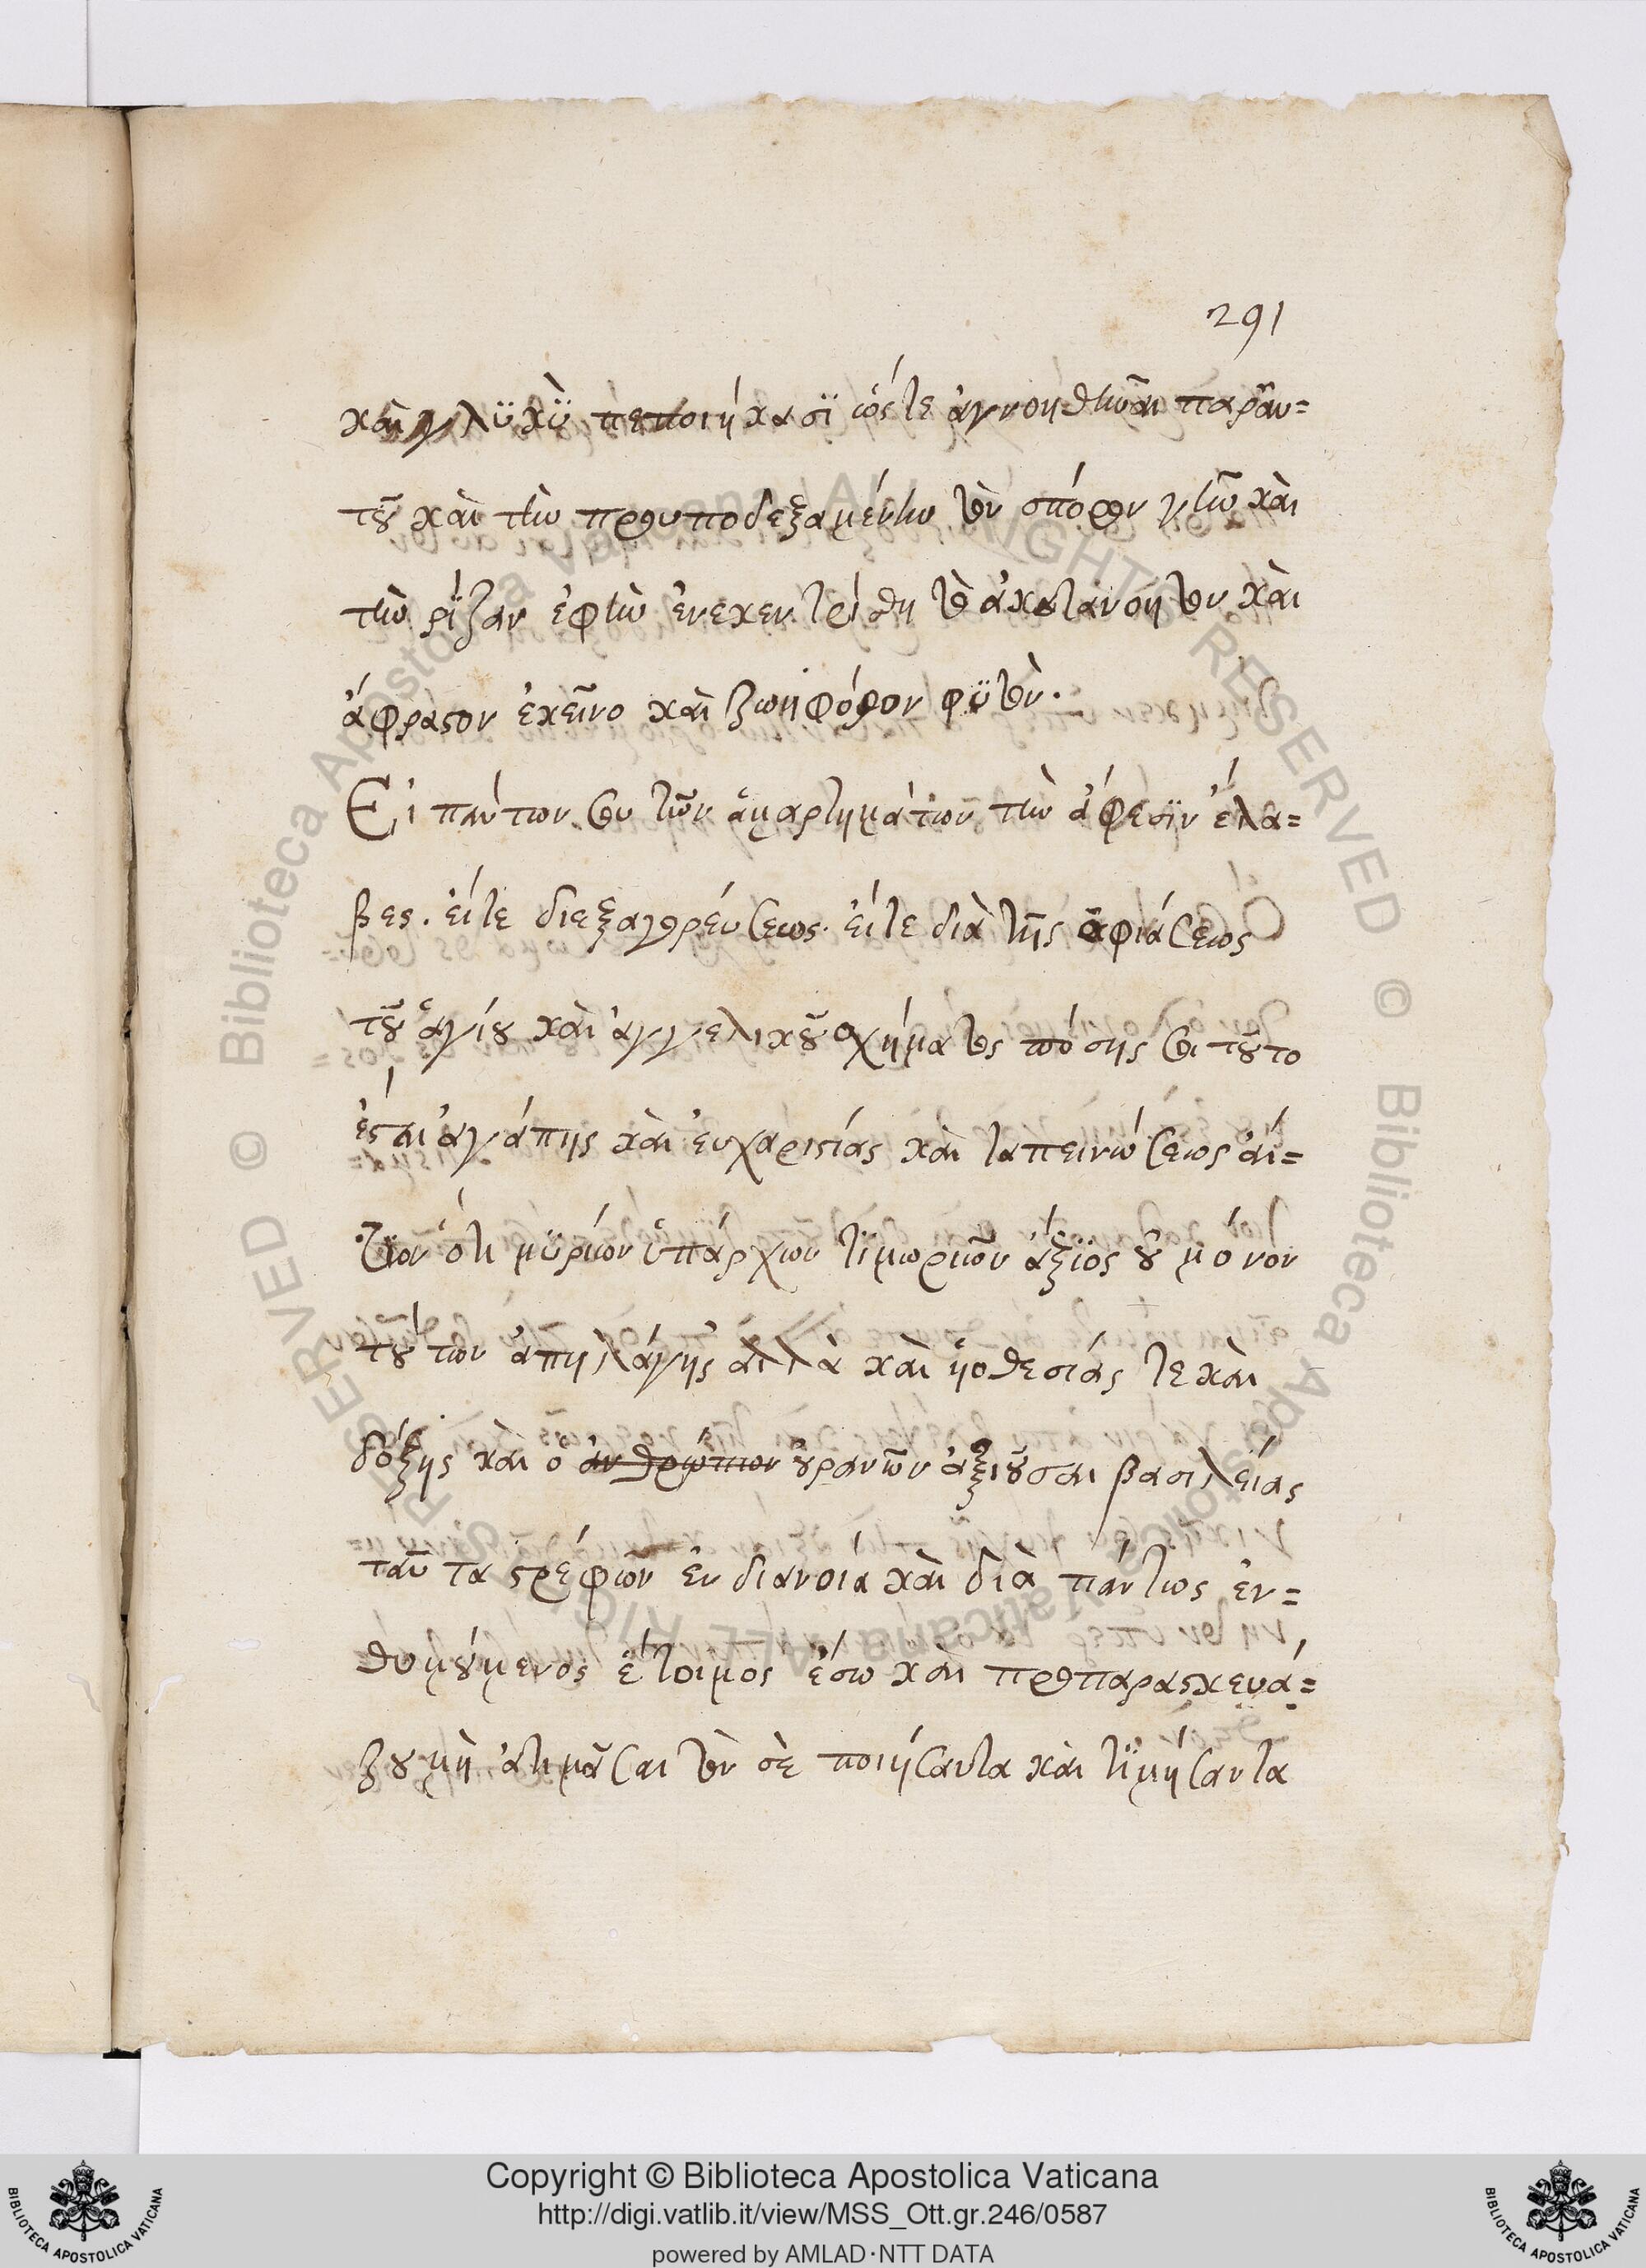 291
καὶ γλϋκϋ πεποιήκασϊ ὥστε ἀγνοηθῆναι παρʼαυ=
τοῦ καὶ τὴν προυποδεξαμένην τὸν σπόρον γῆν καὶ
τὴν ρίζαν ἐφʼἣν ἐνεκεντρίθη τὸ ἀκατανόητον καὶ
ἄφραστον ἐκεῖνο καὶ ζωηφόρον φϋτὸν.
Εἰ πάντων σου τῶν ἁμαρτημάτων τὴν ἄφεσϊν ἔλα=
βες. εἴτε διεξαγορεύσεως. εἴτε διὰ τῆς ἀμφιάσεως
τοῦ ἁγίου καὶ ἀγγελικοῦ σχήματος πόσης σοι τοῦτο
ἔσται ἀγάπης καὶ ἐυχαριστίας καὶ ταπεινώσεως ἄι=
τϊον ὅτι μϋρίων ὑπάρχων τϊμωριῶν ἄξϊος οὐ μόνον
τούτων ἀπηλλάγης ἀλλὰ καὶ ἡοθεσίας τε καὶ
δόξης καὶ ὁ ἀνθρώπων οὐρανῶν ἀξιοῦσαι βασιλείας
ταῦτα στρέφων ἐν διανοία καὶ διὰ πάντως ἐν=
θυμούμενος ἕτοιμος ἔσω καὶ προπαρασκευά=
ζου μὴ ἀτιμᾶσαι τὸν σὲ ποιήσαντα καὶ τϊμήσαντα
Copyright © Biblioteca Apostolica Vaticana
http://digi.vatlib.it/view/MSS_Ott.gr.246/0587
powered by AMLAD·NTT DATA
BIBLIOTECA APOSTOLICA VATICANA
BIBLIOTECA APOSTOLICA VATICANA